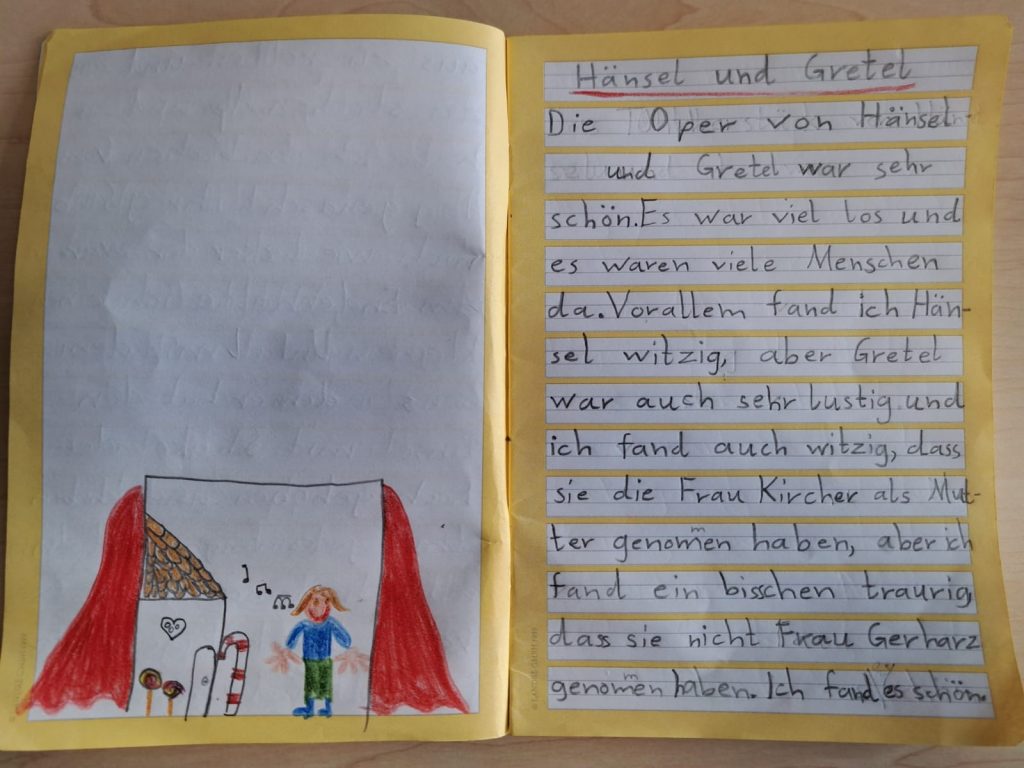 Hänsel und Gretel
Die Oper von Hänsel-
und Gretel war sehr
schön. Es war viel los und
es waren viele Menschen
da. Vorallem fand ich Hän-
sel witzig, aber Gretel
war auch sehr lustig und
ich fand auch witzig, dass
sie die Frau Kircher als Mut-
ter genommen haben, aber ich
fand ein bisschen traurig,
dass sie nicht Frau Gerharz
genommen haben. Ich fand es schön.